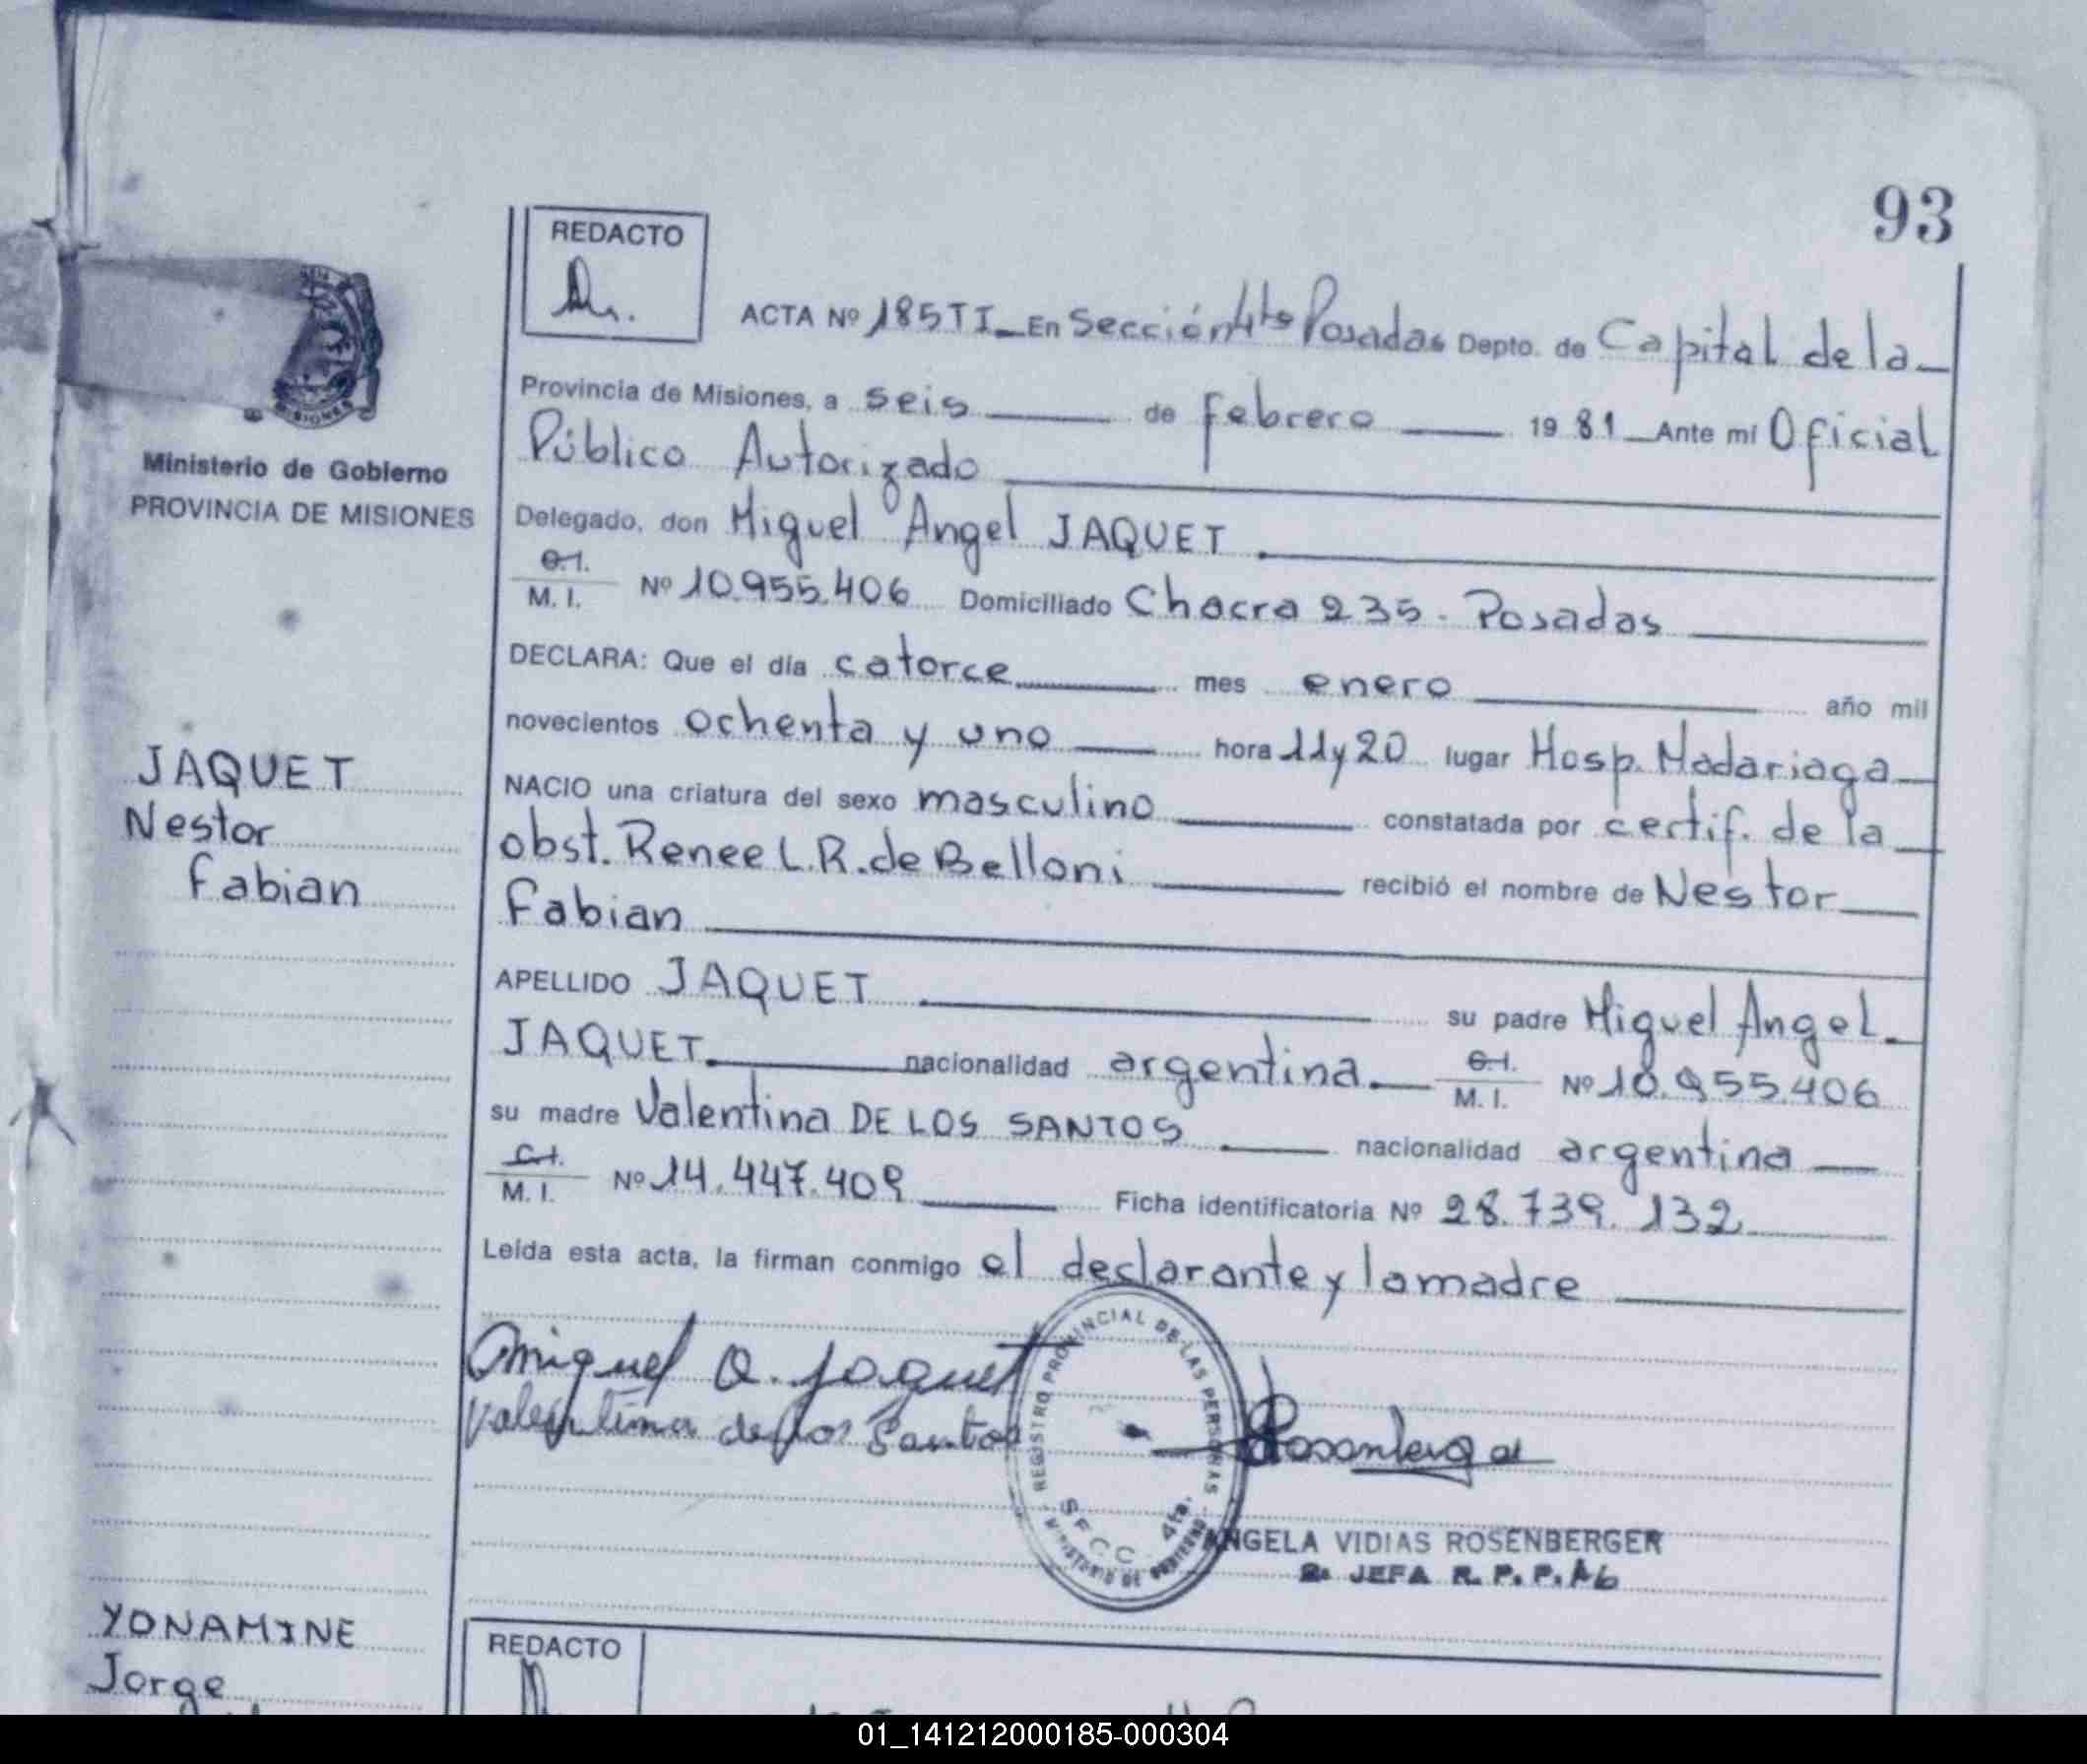 93
REDACTO
ACTA Nº 185 TI En Sección 4ta Posadas Depto. de Capital de la
Provincia de Misiones, a seis de febrero 1981 Ante mí Oficial
Público Autorizado
Delegado, don Miguel Angel JAQUET
C.I.
M. I. Nº 10.955.406 Domiciliado Chacra 235 - Posadas
DECLARA: Que el día catorce mes enero año mil
novecientos ochenta y uno hora 11 y 20 lugar Hosp. Madariaga
NACIO una criatura del sexo masculino constatada por certif. de la
obst. Renee L. R. de Belloni recibió el nombre de Nestor
Fabian
APELLIDO JAQUET su padre Miguel Angel
JAQUET nacionalidad argentina C.I.
M. I. Nº 10.955.406
su madre Valentina DE LOS SANTOS nacionalidad argentina
C.I.
M. I. Nº 14.447.409 Ficha identificatoria Nº 28.739.132
Leída esta acta, la firman conmigo el declarante y la madre
Miguel A. Jaquet
Valentina de los Santos
REGISTRO PROVINCIAL DE LAS PERSONAS
SECC. 4ta.
MINISTERIO DE GOBIERNO
ANGELA VIDIAS ROSENBERGER
2a JEFA R. P. P.
MISIONES
Ministerio de Gobierno
PROVINCIA DE MISIONES
JAQUET
Nestor
Fabian
YONAMINE
Jorge
REDACTO
01_141212000185-000304